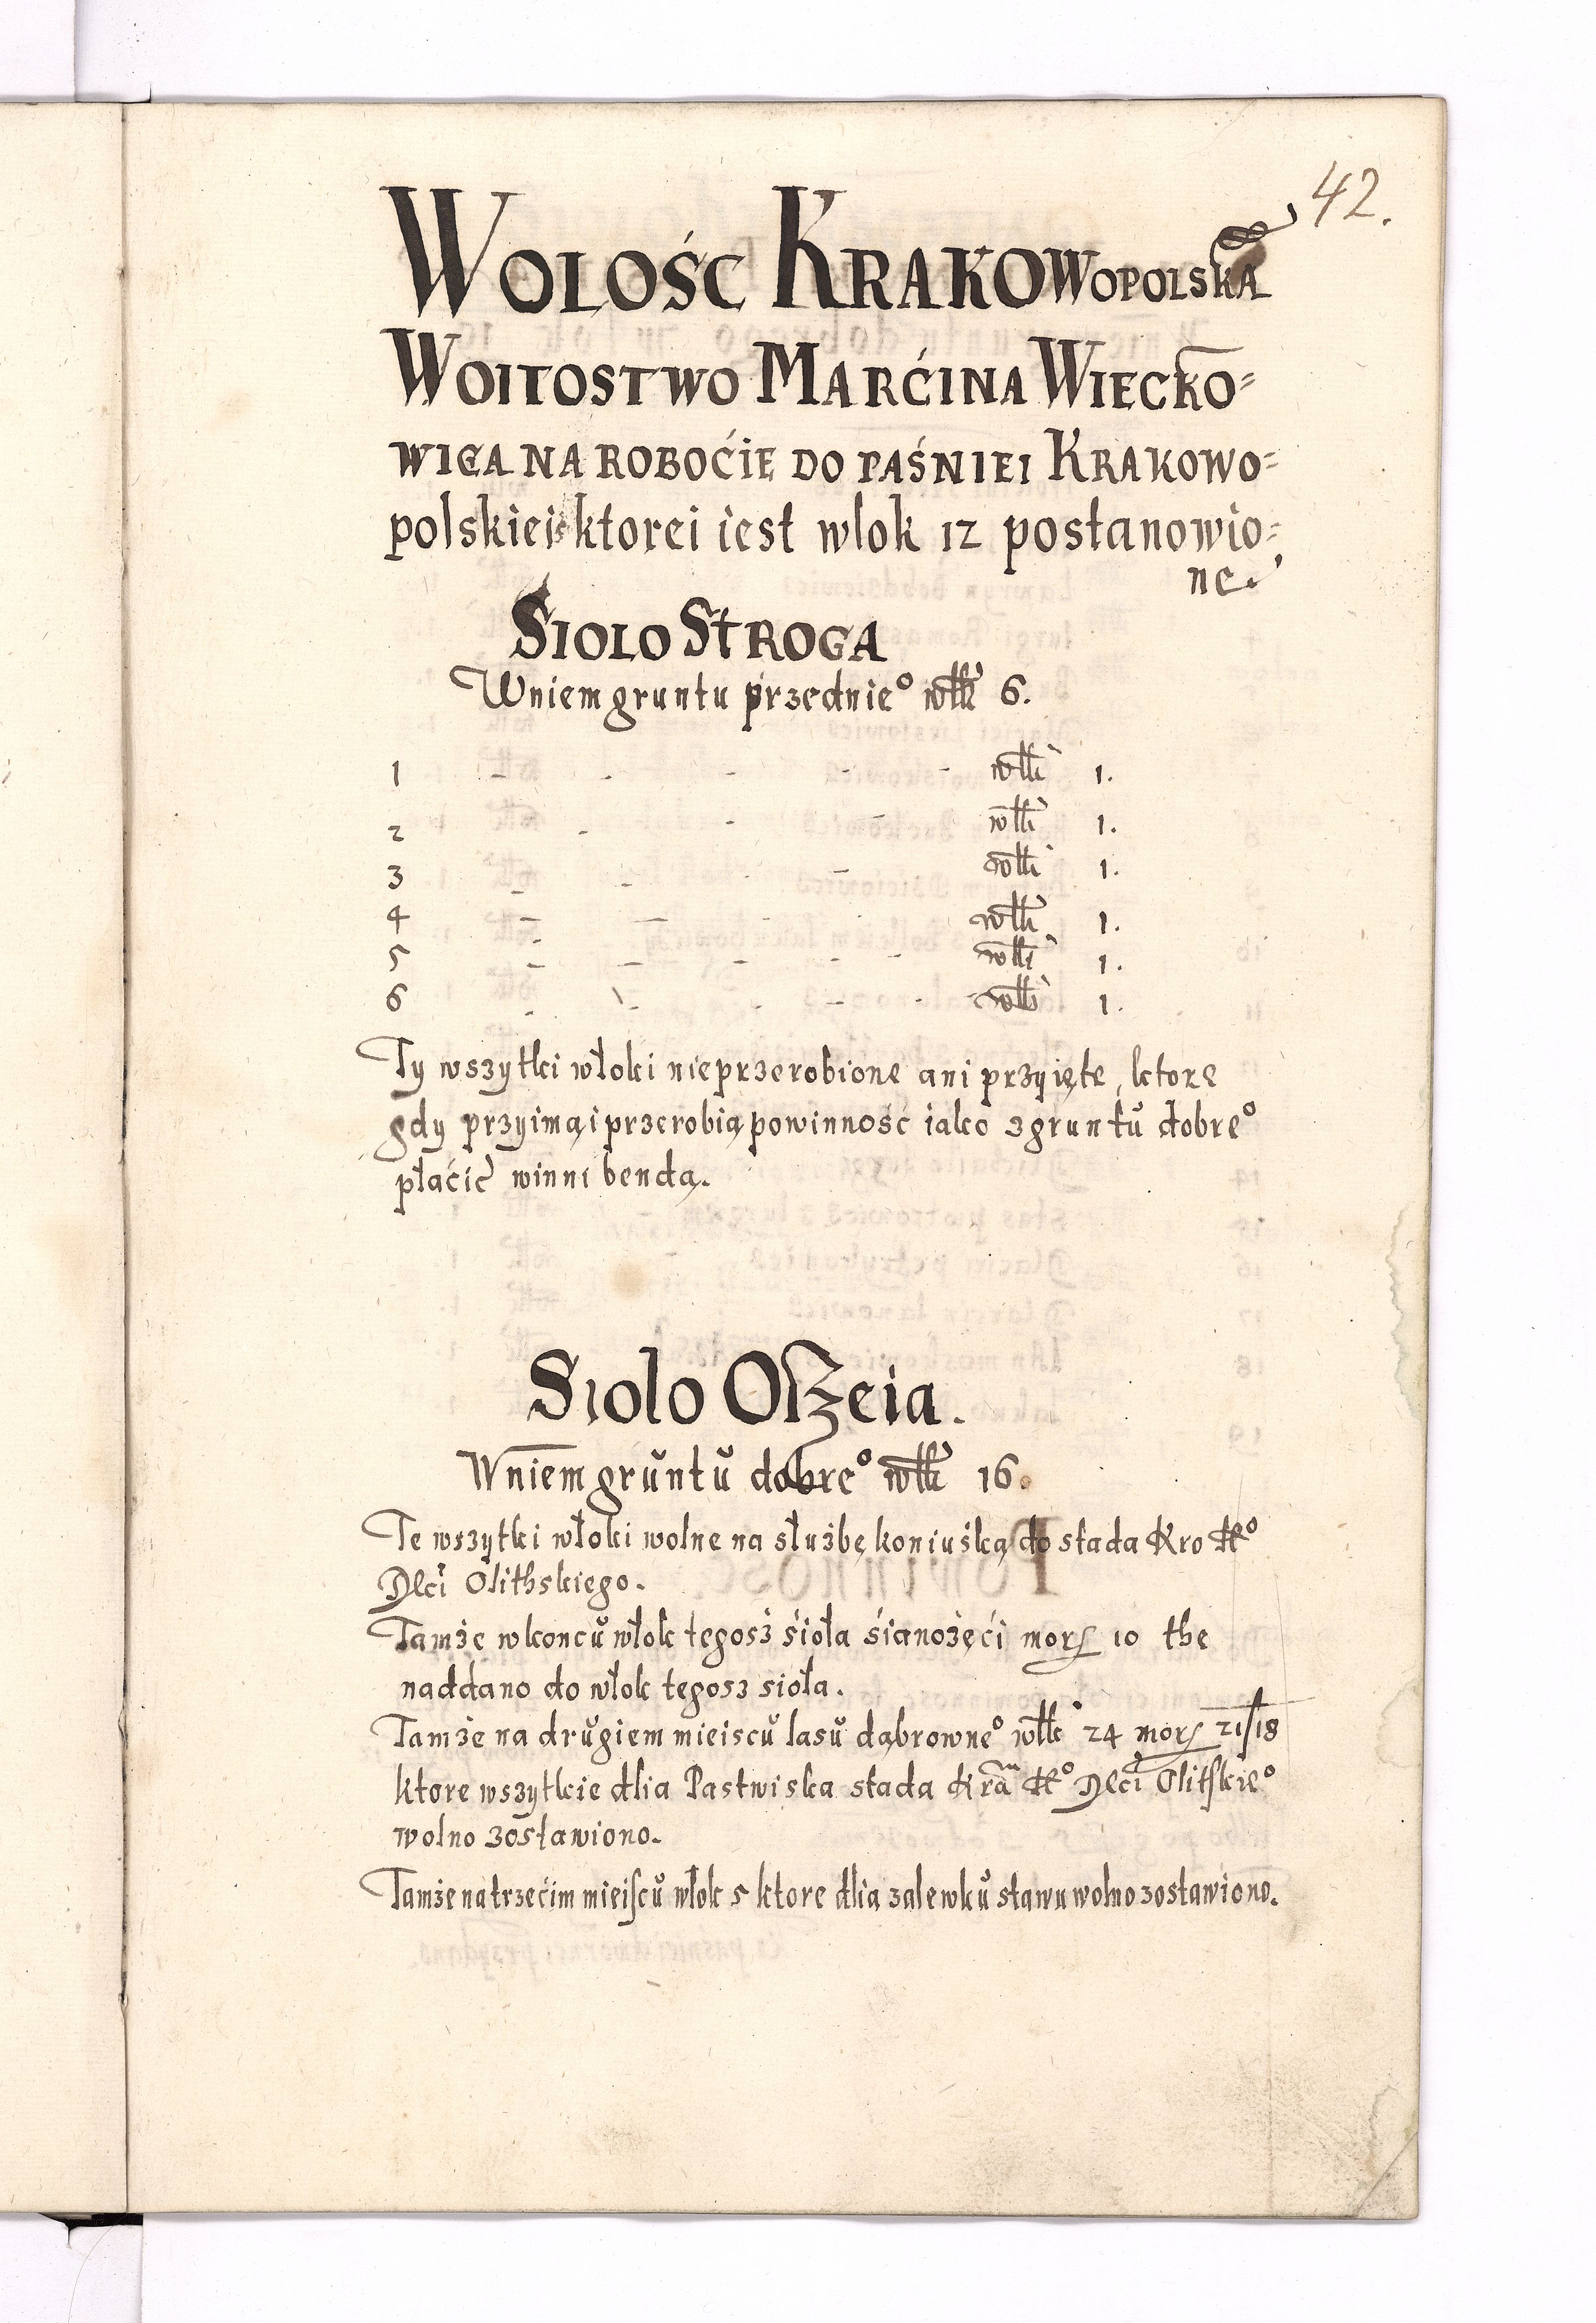 42.
WOLOŚC KRAKOWOPOLSKA
WOITOSTWO MARĆINA WIECKO=
WICA NA ROBOĆIE DO PAŚNIEI KRAKOWO=
polskiei ktorei iest wlok 12 postanowio=
ne.
SIOLO STROGA
Wniem gruntu przednie° włk 6.
1 - - - - - włk 1.
2 - - - włk 1.
3 - - - włk 1.
4 - - włk 1.
5 - - - - - włk 1.
6 - - - - - włk 1.
Ty wszytki włoki nieprzerobione ani przyięte, ktore
gdy przyimą i przerobią powinność iako zgruntŭ dobre°
płaćić winni bendą.
Siolo Olszeia.
Wniem grŭntŭ dobre° włk 16.
Te wszytki włoki wolne na służbę koniuśką do stada Kro
Olithskiego.
Tamże wkoncŭ włok tegosż śioła śianożęći morg 10 the
naddano do włok tegosz sioła.
Tamże na drŭgiem mieiscŭ lasŭ dąbrowne° włk 24 morg 21/18
ktore wszytkie dlia Pastwiska stada Olitskie°
wolno zostawiono.
Tamże na trzećim mieiscŭ włok 5 ktore dlia zalewkŭ stawu wolno zostawiono.